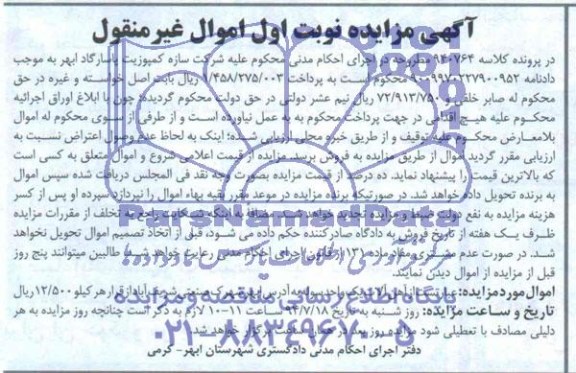 آگهی مزایده نوبت اول اموال غیر منقول
در پرونده کلاسه ۹۴۰۷۶۴ مطروحه در اجرای احکام مدنی محکوم علیه شرکت سازه کمپوزیت پاسارگاد ابهر به موجب
دادنامه ۹۰۰۹۹۷۰۲۲۷۹۰۰۹۵۲ محکوم است به پرداخت ۱/۴۵۸/۲۷۵/۰۰۳ ریال بابت اصل خواسته و غیره در حق
محکوم له صابر خلفی و ۷۲/۹۱۳/۷۵۰ ریال نیم عشر دولتی در حق دولت محکوم گردیده؛ چون با ابلاغ اوراق اجرائیه
محکوم علیه هیچ اقدامی در جهت پرداخت محکوم به به عمل نیاورده است و از طرفی از سوی محکوم له اموال
بلامعارض محکوم علیه توقیف و از طریق خبره محلی ارزیابی شده؛ اینک به لحاظ عدم وصول اعتراض نسبت به
ارزیابی مقرر گردید اموال از طریق مزایده به فروش برسد. مزایده از قیمت اعلامی شروع و اموال متعلق به کسی است
که بالاترین قیمت را پیشنهاد نماید. ده درصد از قیمت مزایده بصورت وجه نقد فی المجلس دریافت شده سپس اموال
به برنده تحویل داده خواهد شد. در صورتیکه برنده مزایده در موعد مقرر بقیه بهاء اموال را نپردازد سپرده او پس از کسر
هزینه مزایده به نفع دولت ضبط و مزایده تجدید خواهد شد. مضافا به اینکه شکایت راجع به تخلف از مقررات مزایده
ظرف یک هفته از تاریخ فروش به دادگاه صادرکننده حکم داده می شود، قبل از اتخاذ تصمیم اموال تحویل نخواهد
شد. در صورت عدم مشتری مفاد ماده ۱۳۱ از قانون اجرای احکام مدنی رعایت خواهد شد. طالبین میتوانند پنج روز
قبل از مزایده از اموال دیدن نمایند.
اموال مورد مزایده: آدرس ابهر شهرک صنعتی شریف آباد از قرار هر کیلو ۱۲/۵۰۰ ریال
تاریخ و ساعت مزایده: روز شنبه به تاریخ ۹۴/۷/۱۸ ساعت ۱۱-۱۰ لازم به ذکر است چنانچه روز مزایده به هر
دلیلی مصادف با تعطیلی شود مزایده روز بعد در همان ساعت برگزار خواهد شد.
دفتر اجرای احکام مدنی دادگستری شهرستان ابهر- کرمی
ParsNamadData
پایگاه اطلاع رسانی مناقصه و مزایده
۰۲۱-۸۸۳۴۹۶۷۰-۵